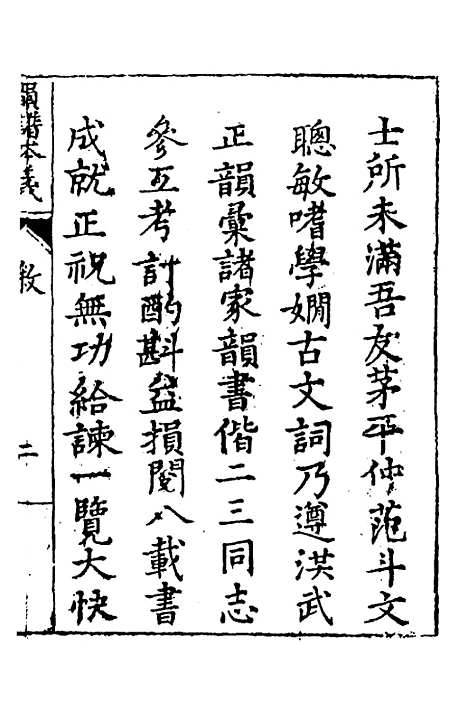 士所未滿吾友茅平仲范斗文
聰敏嗜學嫺古文詞乃遵洪武
正韻彙諸家韻書偕二三同志
參互考訂酌斟益損閱八載書
成就正祝無功給諫一覽大快
韻譜本義
敘
二